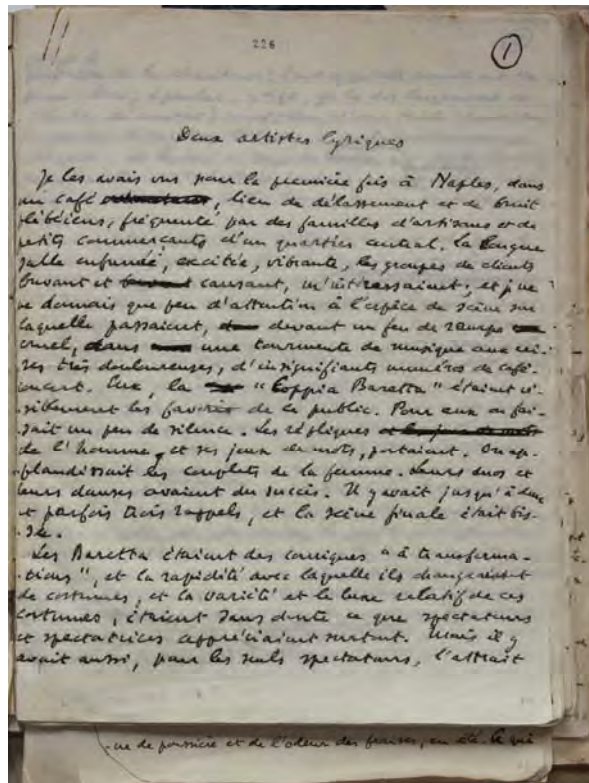 226
1
Deux artistes lyriques
Je les avais vus pour la première fois à Naples, dans
un café, lieu de délassement et de bruit
plébéiens, fréquenté par des familles d'artisans et de
petits commerçants d'un quartier central. La longue
salle enfumée, excitée, vibrante, les groupes de clients
buvant et causant, m'intéressaient; et je ne
donnais que peu d'attention à l'espèce de scène sur
laquelle passaient, devant un feu de rampe
cruel, dans une tourmente de musique aux
très douloureuses, d'insignifiants numéros de café-
concert. Eux, la "Coppia Baretta" étaient vi-
siblement les favoris de ce public. Pour eux on fai-
sait un peu de silence. Les répliques et les jeux de mots
de l'homme, et ses jeux de mots, portaient. On ap-
plaudissait les couplets de la femme. Leurs duos et
leurs danses avaient du succès. Il y avait jusqu'à deux
et parfois trois rappels, et la scène finale était bis-
sée.
Les Baretta étaient des comiques "à transforma-
tions", et la rapidité avec laquelle ils changeaient
de costumes, et la variété et le luxe relatif de ces
costumes, étaient sans doute ce que spectateurs
et spectatrices appréciaient surtout. Mais il y
avait aussi, pour les seuls spectateurs, l'attrait
-ue de poussière et de l'odeur des fraises, en été. Ce qui